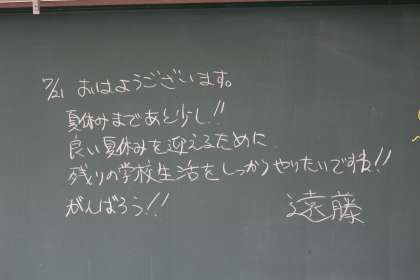 7/21 おはようございます。
夏休みまであと少し!!
良い夏休みを迎えるために
残りの学校生活をしっかりやりたいですね!!
がんばろう!! 遠藤